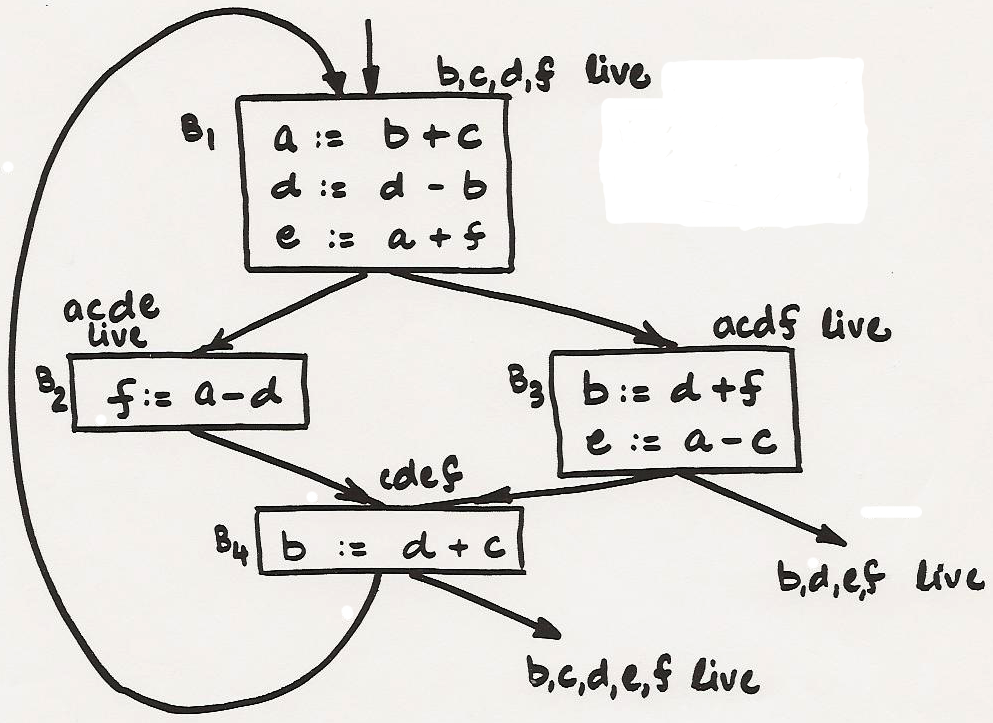 b,c,d,f live
B1
a := b + c
d := d - b
e := a + f
acde
live
acdf live
B2
f := a - d
B3
b := d + f
e := a - c
cdef
B4
b := d + c
b,d,e,f live
b,c,d,e,f live